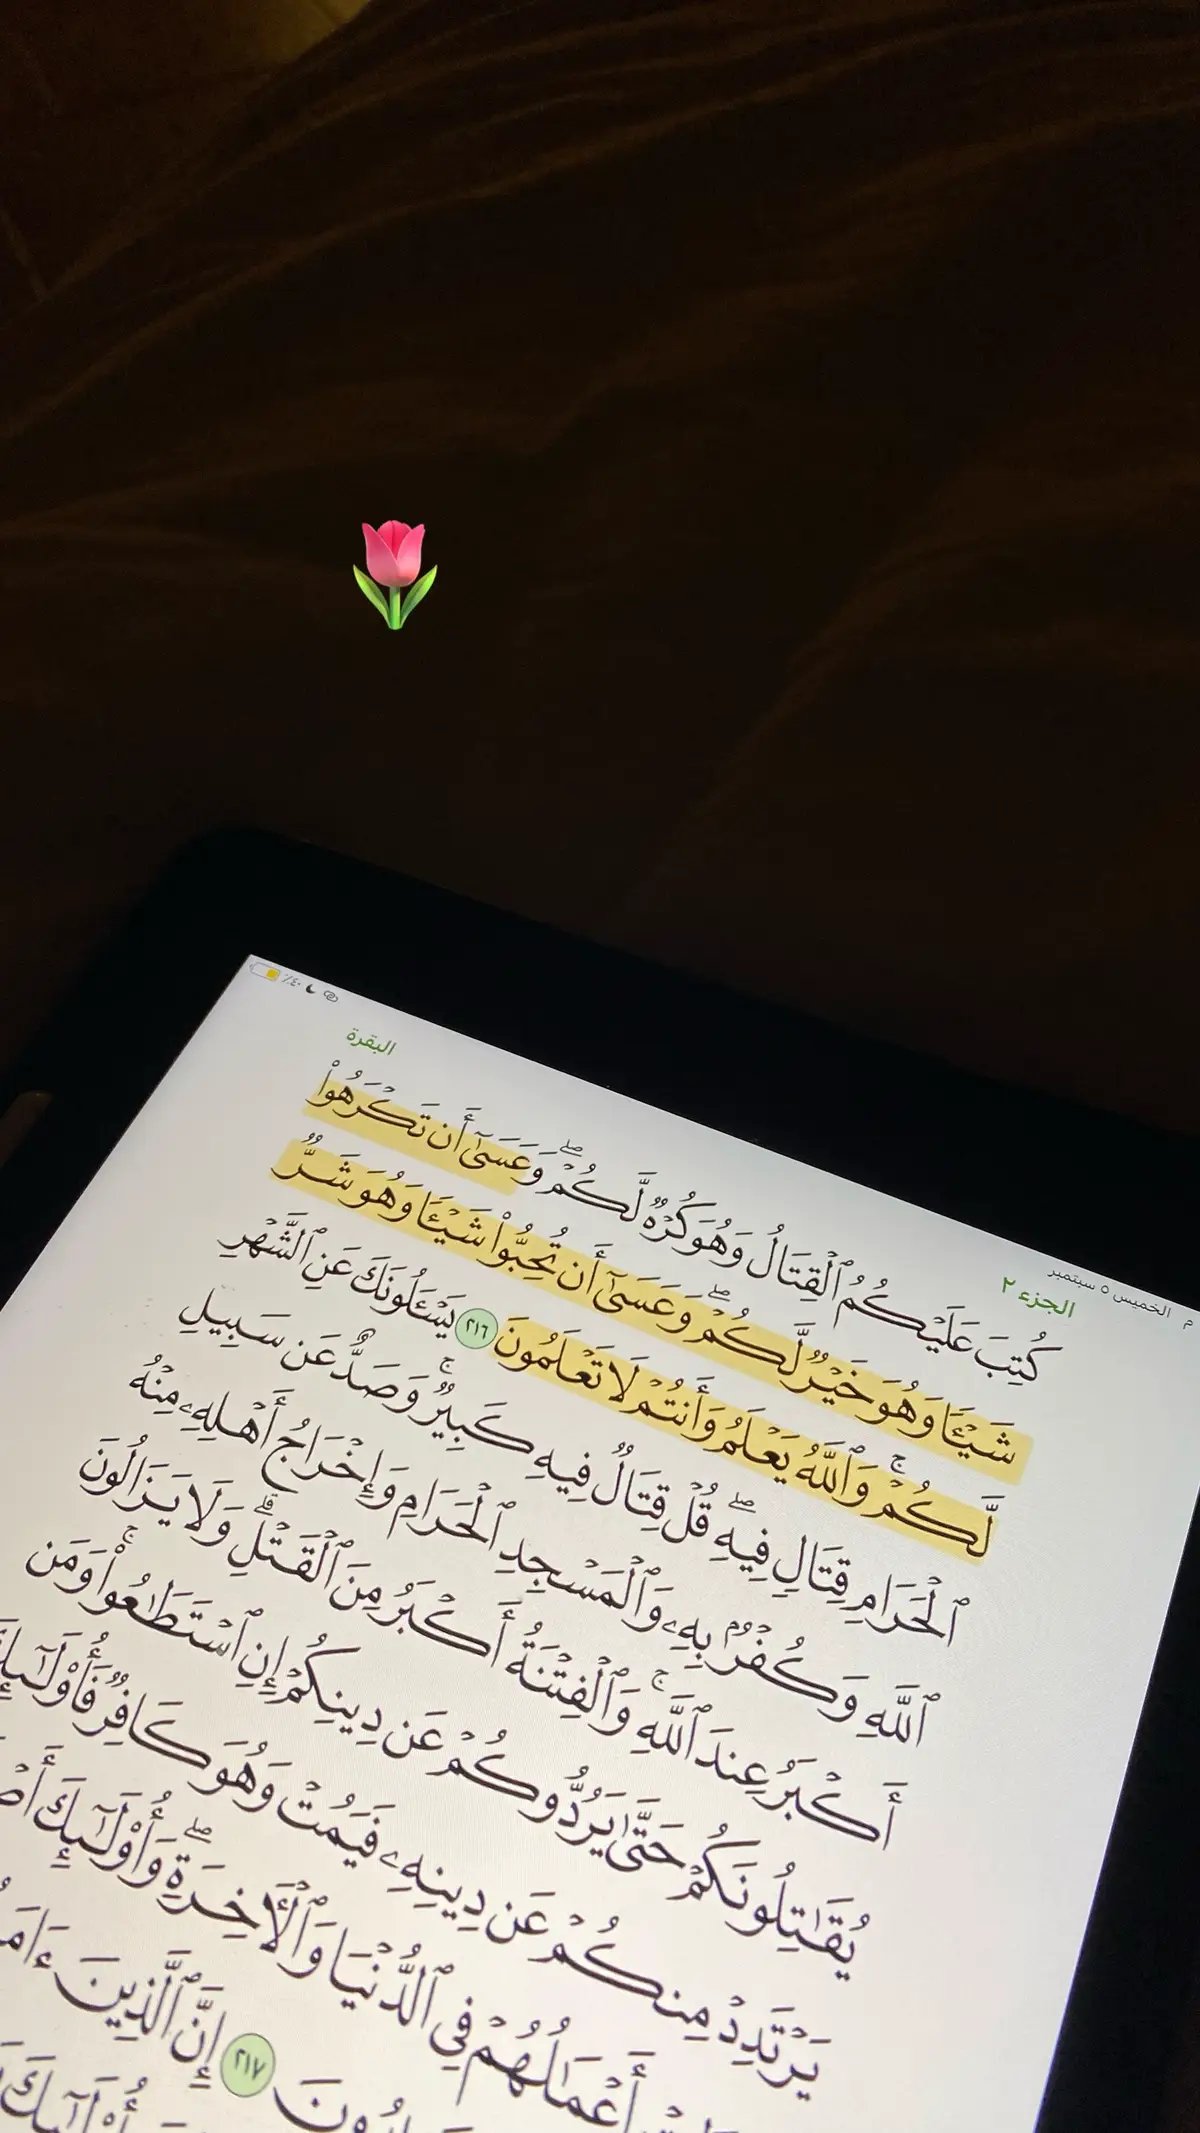 م الخميس ٥ سبتمبر
٤٠٪
الجزء ٢
البقرة
كُتِبَ عَلَيْكُمُ ٱلْقِتَالُ وَهُوَ كُرْهٌ لَّكُمْ ۖ وَعَسَىٰٓ أَن تَكْرَهُوا۟
شَيْـًٔا وَهُوَ خَيْرٌ لَّكُمْ ۖ وَعَسَىٰٓ أَن تُحِبُّوا۟ شَيْـًٔا وَهُوَ شَرٌّ
لَّكُمْ ۚ وَٱللَّهُ يَعْلَمُ وَأَنتُمْ لَا تَعْلَمُونَ ٢١٦ يَسْـَٔلُونَكَ عَنِ ٱلشَّهْرِ
ٱلْحَرَامِ قِتَالٍ فِيهِ ۖ قُلْ قِتَالٌ فِيهِ كَبِيرٌ ۚ وَصَدٌّ عَن سَبِيلِ
ٱللَّهِ وَكُفْرٌۢ بِهِۦ وَٱلْمَسْجِدِ ٱلْحَرَامِ وَإِخْرَاجُ أَهْلِهِۦ مِنْهُ
أَكْبَرُ عِندَ ٱللَّهِ ۚ وَٱلْفِتْنَةُ أَكْبَرُ مِنَ ٱلْقَتْلِ ۗ وَلَا يَزَالُونَ
يُقَـٰتِلُونَكُمْ حَتَّىٰ يَرُدُّوكُمْ عَن دِينِكُمْ إِنِ ٱسْتَطَـٰعُوا۟ ۚ وَمَن
يَرْتَدِدْ مِنكُمْ عَن دِينِهِۦ فَيَمُتْ وَهُوَ كَافِرٌ
أَعْمَـٰلُهُمْ فِى ٱلدُّنْيَا وَٱلْـَٔاخِرَةِ ۖ وَأُو۟لَـٰٓئِكَ
٢١٧ إِنَّ ٱلَّذِينَ